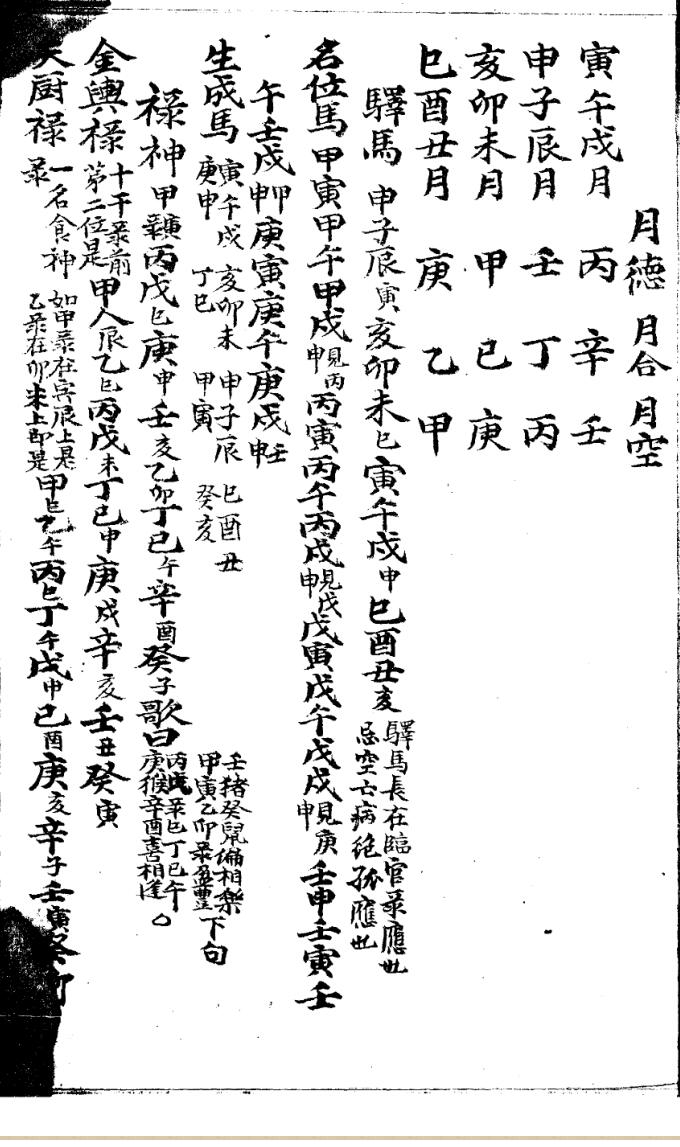 月德 月合 月空
寅午戌月 丙 辛 壬
申子辰月 壬 丁 丙
亥卯未月 甲 己 庚
巳酉丑月 庚 乙 甲
驛馬 申子辰寅 亥卯未巳 寅午戌申 巳酉丑亥 驛馬長在臨官录應也 忌空亡病绝孤應也
名位馬 甲寅甲午甲戌見丙申 丙寅丙午丙戌見戊申 戊寅戊午戊戌見庚申 壬申壬寅壬
午壬戌 庚寅庚午庚戌壬申
生成馬 寅午戌庚申 亥卯未丁巳 申子辰甲寅 巳酉丑癸亥
禄神 甲寅 丙戊巳 庚申 壬亥 乙卯 丁己午 辛酉 癸子 歌曰 壬猪癸鼠偏相樂 甲寅乙卯录盈豐 下句 丙戊录巳丁己午 庚猴辛酉喜相逢
金輿禄 十干录前第二位是 甲人辰 乙巳 丙戊未 丁己申 庚戌 辛亥 壬丑 癸寅
天厨禄 一名食神录 如甲录在寅辰上是 乙录在卯未上即是 甲巳 乙午 丙巳 丁午 戊申 己酉 庚亥 辛子 壬寅 癸卯